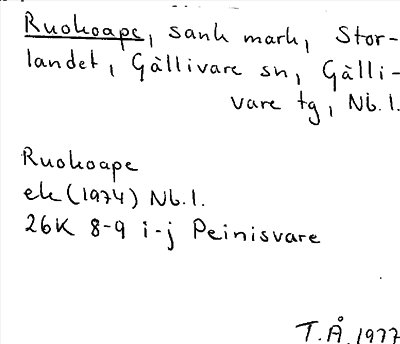 Ruokoape, sank mark, Stor-
landet, Gällivare sn, Gälli-
vare tg, Nb.l.
Ruokoape
ek (1974) Nb.l.
26K 8-9 i-j Peinisvare
T.Å. 1977